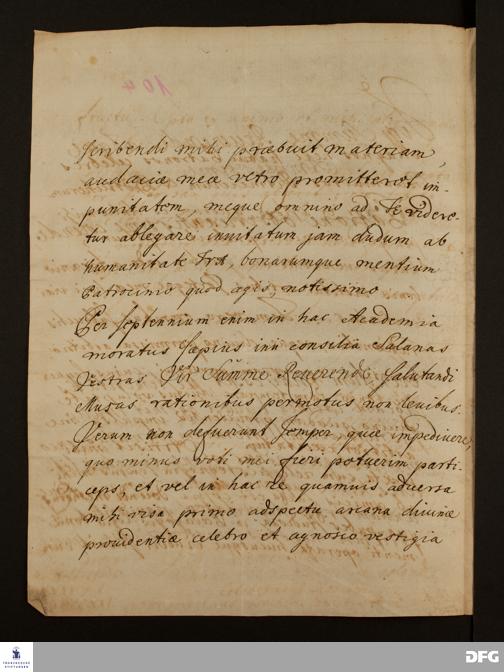 104
scribendi mihi præbuit materiam,
audaciæ meæ vero promitteret im-
punitatem, meque omnino ad Te videre-
tur ablegare invitatum jam dudum ab
humanitate Tua, bonarumque mentium
Patrocinio quod agis, notissimo
Per septennium enim in hac Academia
moratus sæpius inii consilia Salanas
Vestras Vir Summe Reverende salutandi
Musas rationibus permotus non levibus.
Verum non defuerunt semper, quæ impedivere,
quo minus voti mei fieri potuerim parti-
ceps, et vel in hac re quamvis adversa
mihi visa primo adspectu arcana divinæ
providentiæ celebro et agnosco vestigia
FRANCKESCHE
STIFTUNGEN
DFG